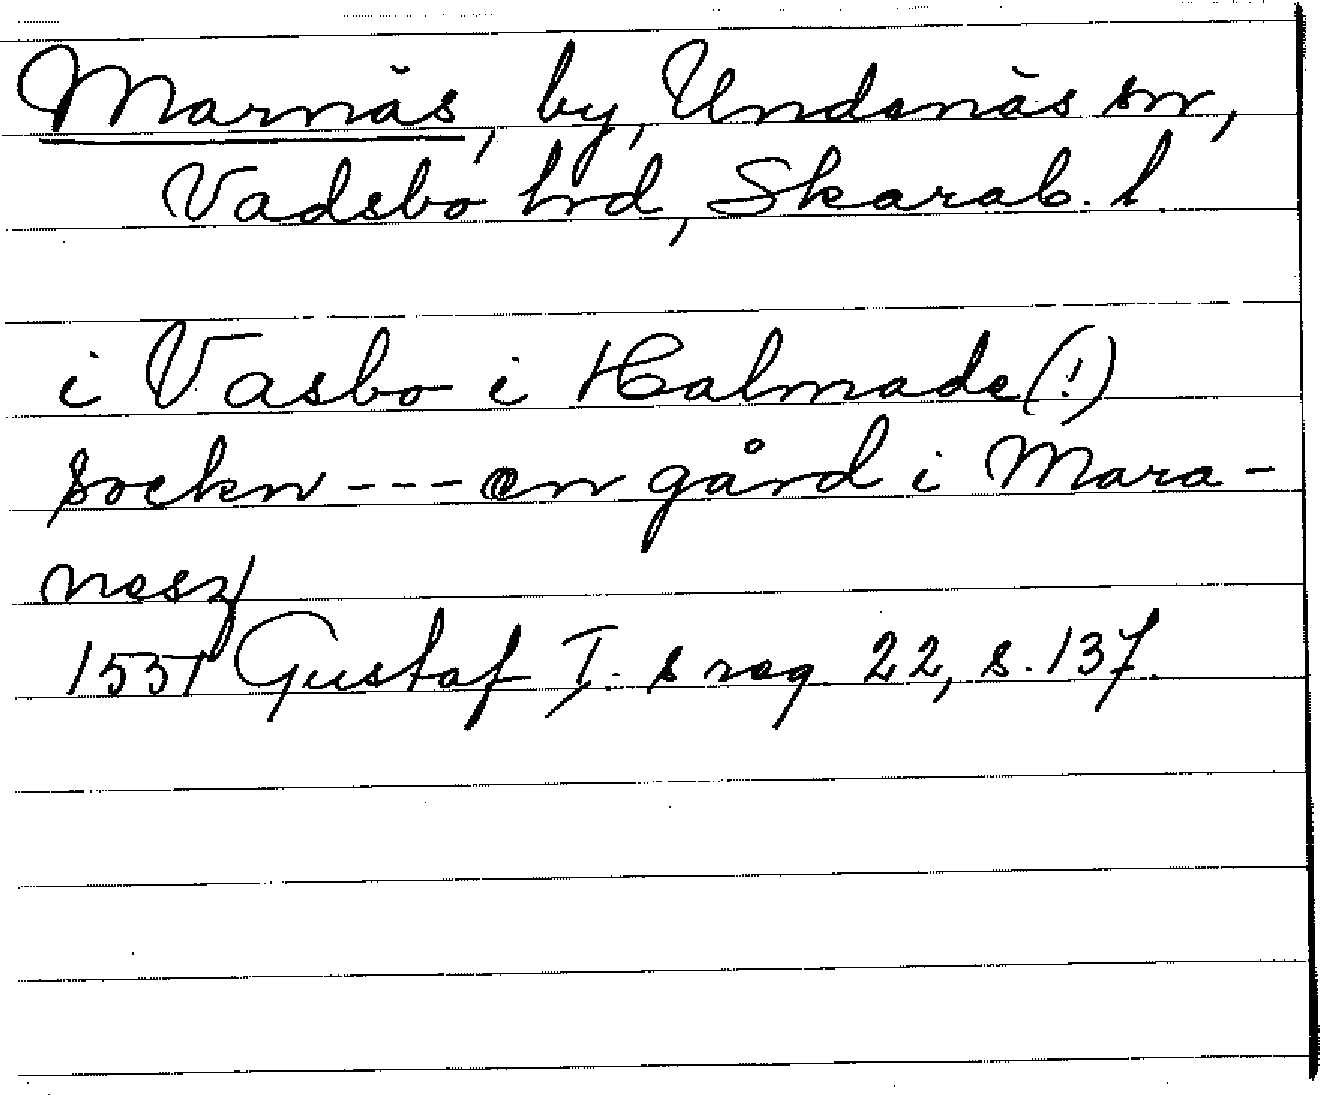 Marnäs, by, Undenäs sn,
Vadsbo hd, Skarab. l.
i Vasbo i Halmade (!)
sockn --- en gård i Mara-
nesz
1551 Gustaf I. s reg. 22, s. 137.